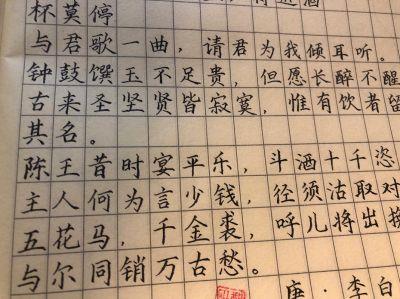 进酒
杯莫停
与君歌一曲，请君为我倾耳听。
钟鼓馔玉不足贵，但愿长醉不醒
古来圣坚贤皆寂寞，惟有饮者留
其名。
陈王昔时宴平乐，斗酒十千恣
主人何为言少钱，径须沽取对
五花马，千金裘，呼儿将出换
与尔同销万古愁。
唐·李白